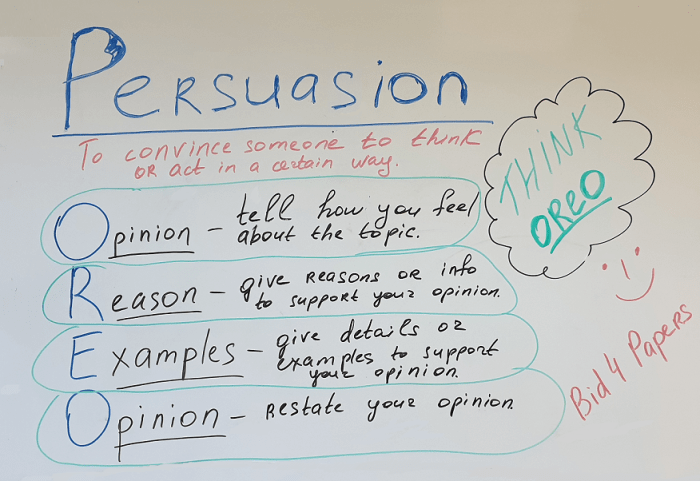 Persuasion
To convince someone to think
OR act in a certain way.
THINK
OREO
Opinion - tell how you feel
about the topic.
Reason - give reasons or info
to support your opinion.
Examples - give details or
examples to support
your opinion.
Opinion - Restate your opinion.
Bid 4 Papers